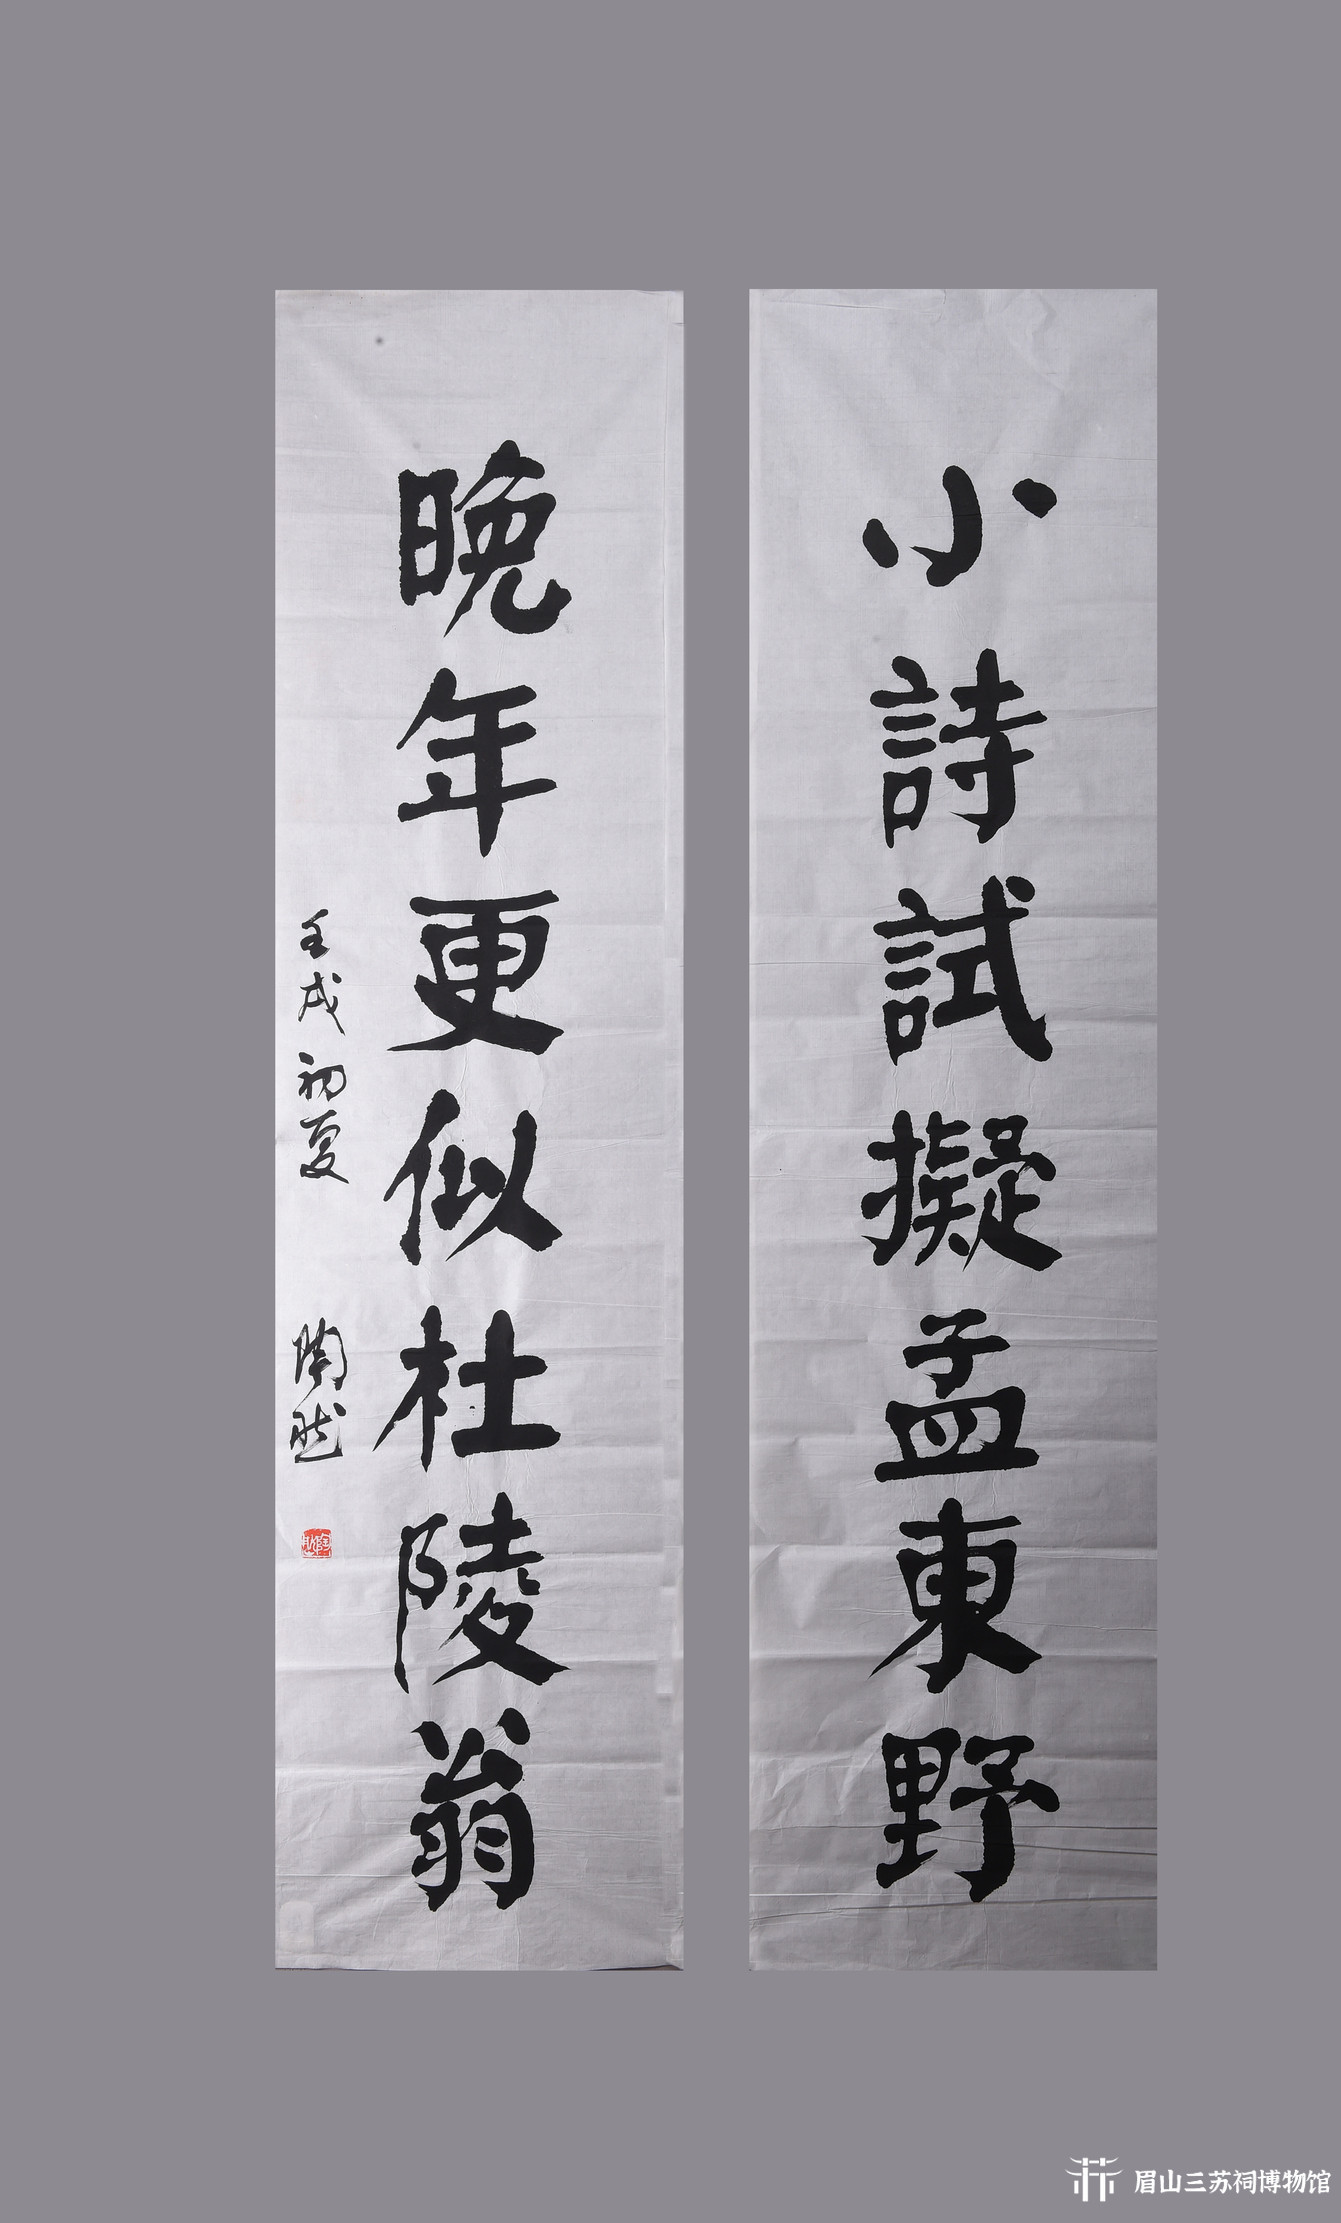 小詩試擬孟東野
晚年更似杜陵翁
壬戌初夏
陶然
眉山三苏祠博物馆